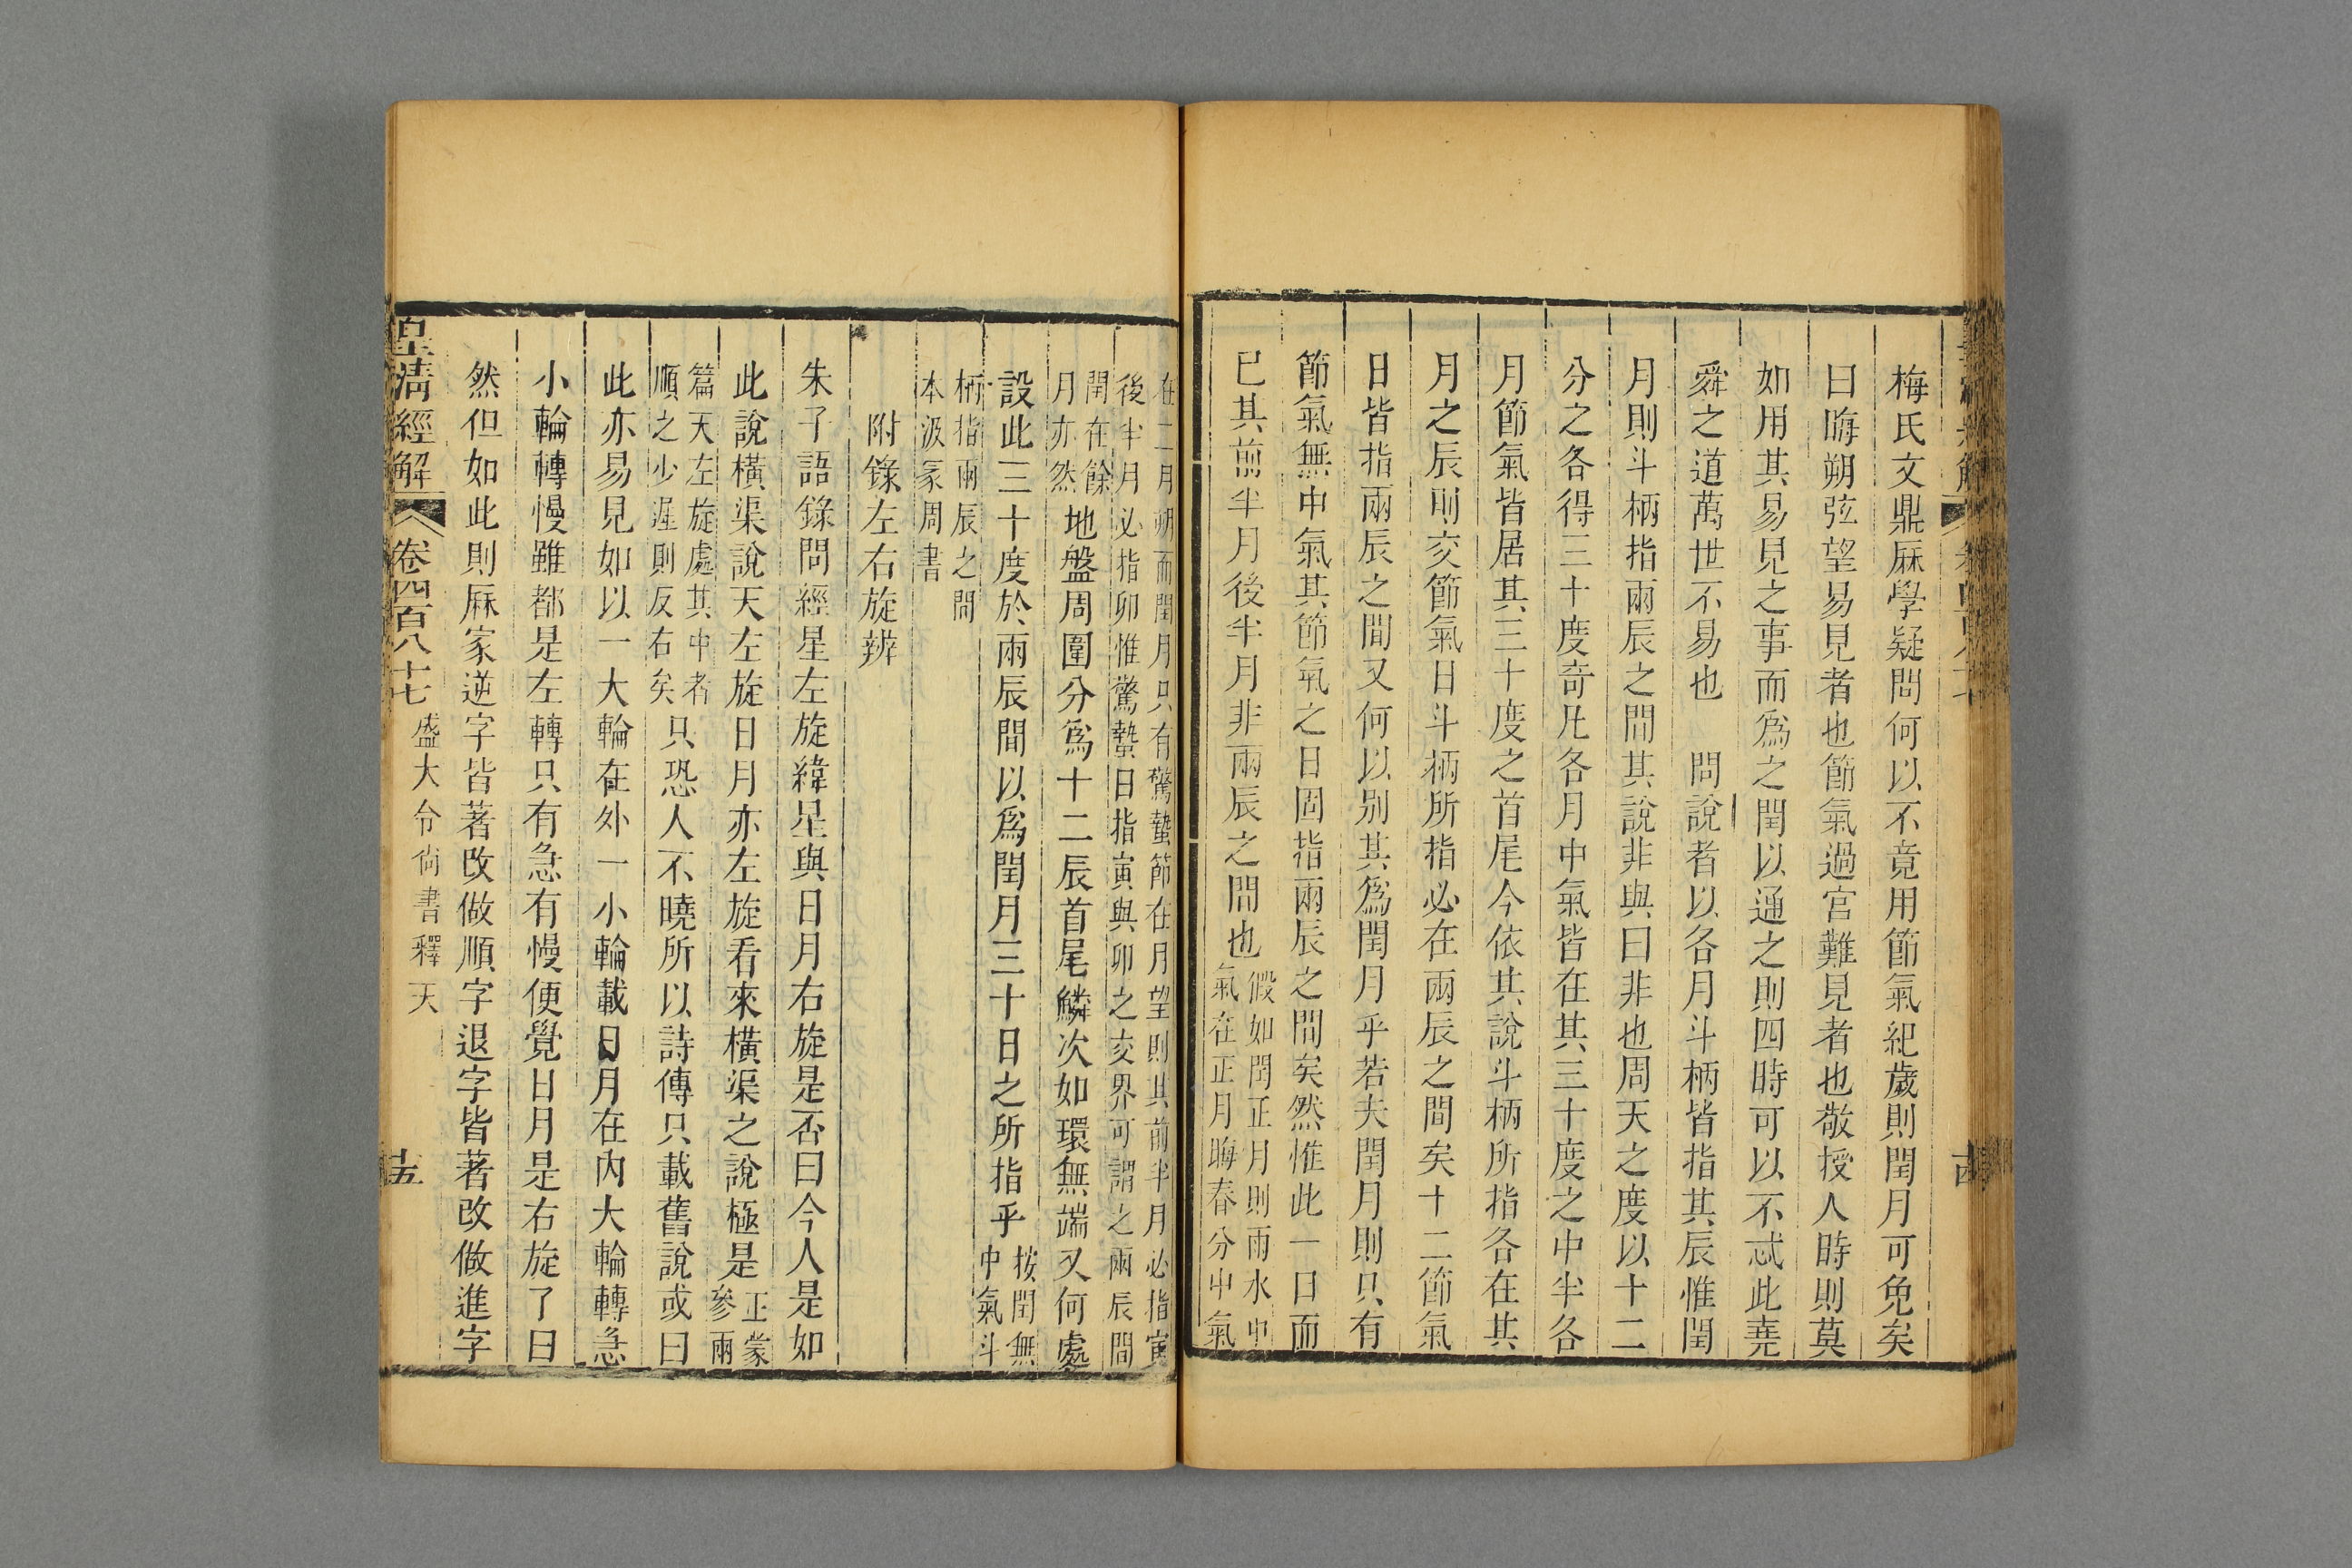 梅氏文鼎厤學疑問何以不竟用節氣紀歲則閏月可免矣
曰晦朔弦望易見者也節氣過宫難見者也敬授人時則莫
如用其易見之事而爲之閏以通之則四時可以不忒此堯
舜之道萬世不易也　問說者以各月斗柄皆指其辰惟閏
月則斗柄指兩辰之間其說非與曰非也周天之度以十二
分之各得三十度奇凡各月中氣皆在其三十度之中半各
月節氣皆居其三十度之首尾今依其說斗柄所指各在其
月之辰則交節氣日斗柄所指必在兩辰之間矣十二節氣
日皆指兩辰之間又何以别其爲閏月乎若夫閏月則只有
節氣無中氣其節氣之日固指兩辰之間矣然惟此一日而
已其前半月後半月非兩辰之間也
假如閏正月則雨水中
氣在正月晦春分中氣
在二月朔而閏月只有驚蟄節在月望則其前半月必指寅
後半月必指卯惟驚蟄日指寅與卯之交界可謂之兩辰間
閏在餘
月亦然
地盤周圍分爲十二辰首尾鱗次如環無端又何處
設此三十度於兩辰間以爲閏月三十日之所指乎
按閏無
中氣斗
柄指兩辰之間
本汲冢周書
附錄左右旋辨
朱子語錄問經星左旋緯星與日月右旋是否曰今人是如
此說橫渠說天左旋日月亦左旋看來橫渠之說極是
正蒙
參兩
篇天左旋處其中者
順之少遲則反右矣
只恐人不曉所以詩傳只載舊說或曰
此亦易見如以一大輪在外一小輪載日月在內大輪轉急
小輪轉慢雖都是左轉只有急有慢便覺日月是右旋了曰
然但如此則厤家逆字皆著改做順字退字皆著改做進字
皇清經解　卷四百八十七　盛大令尙書釋天　十五